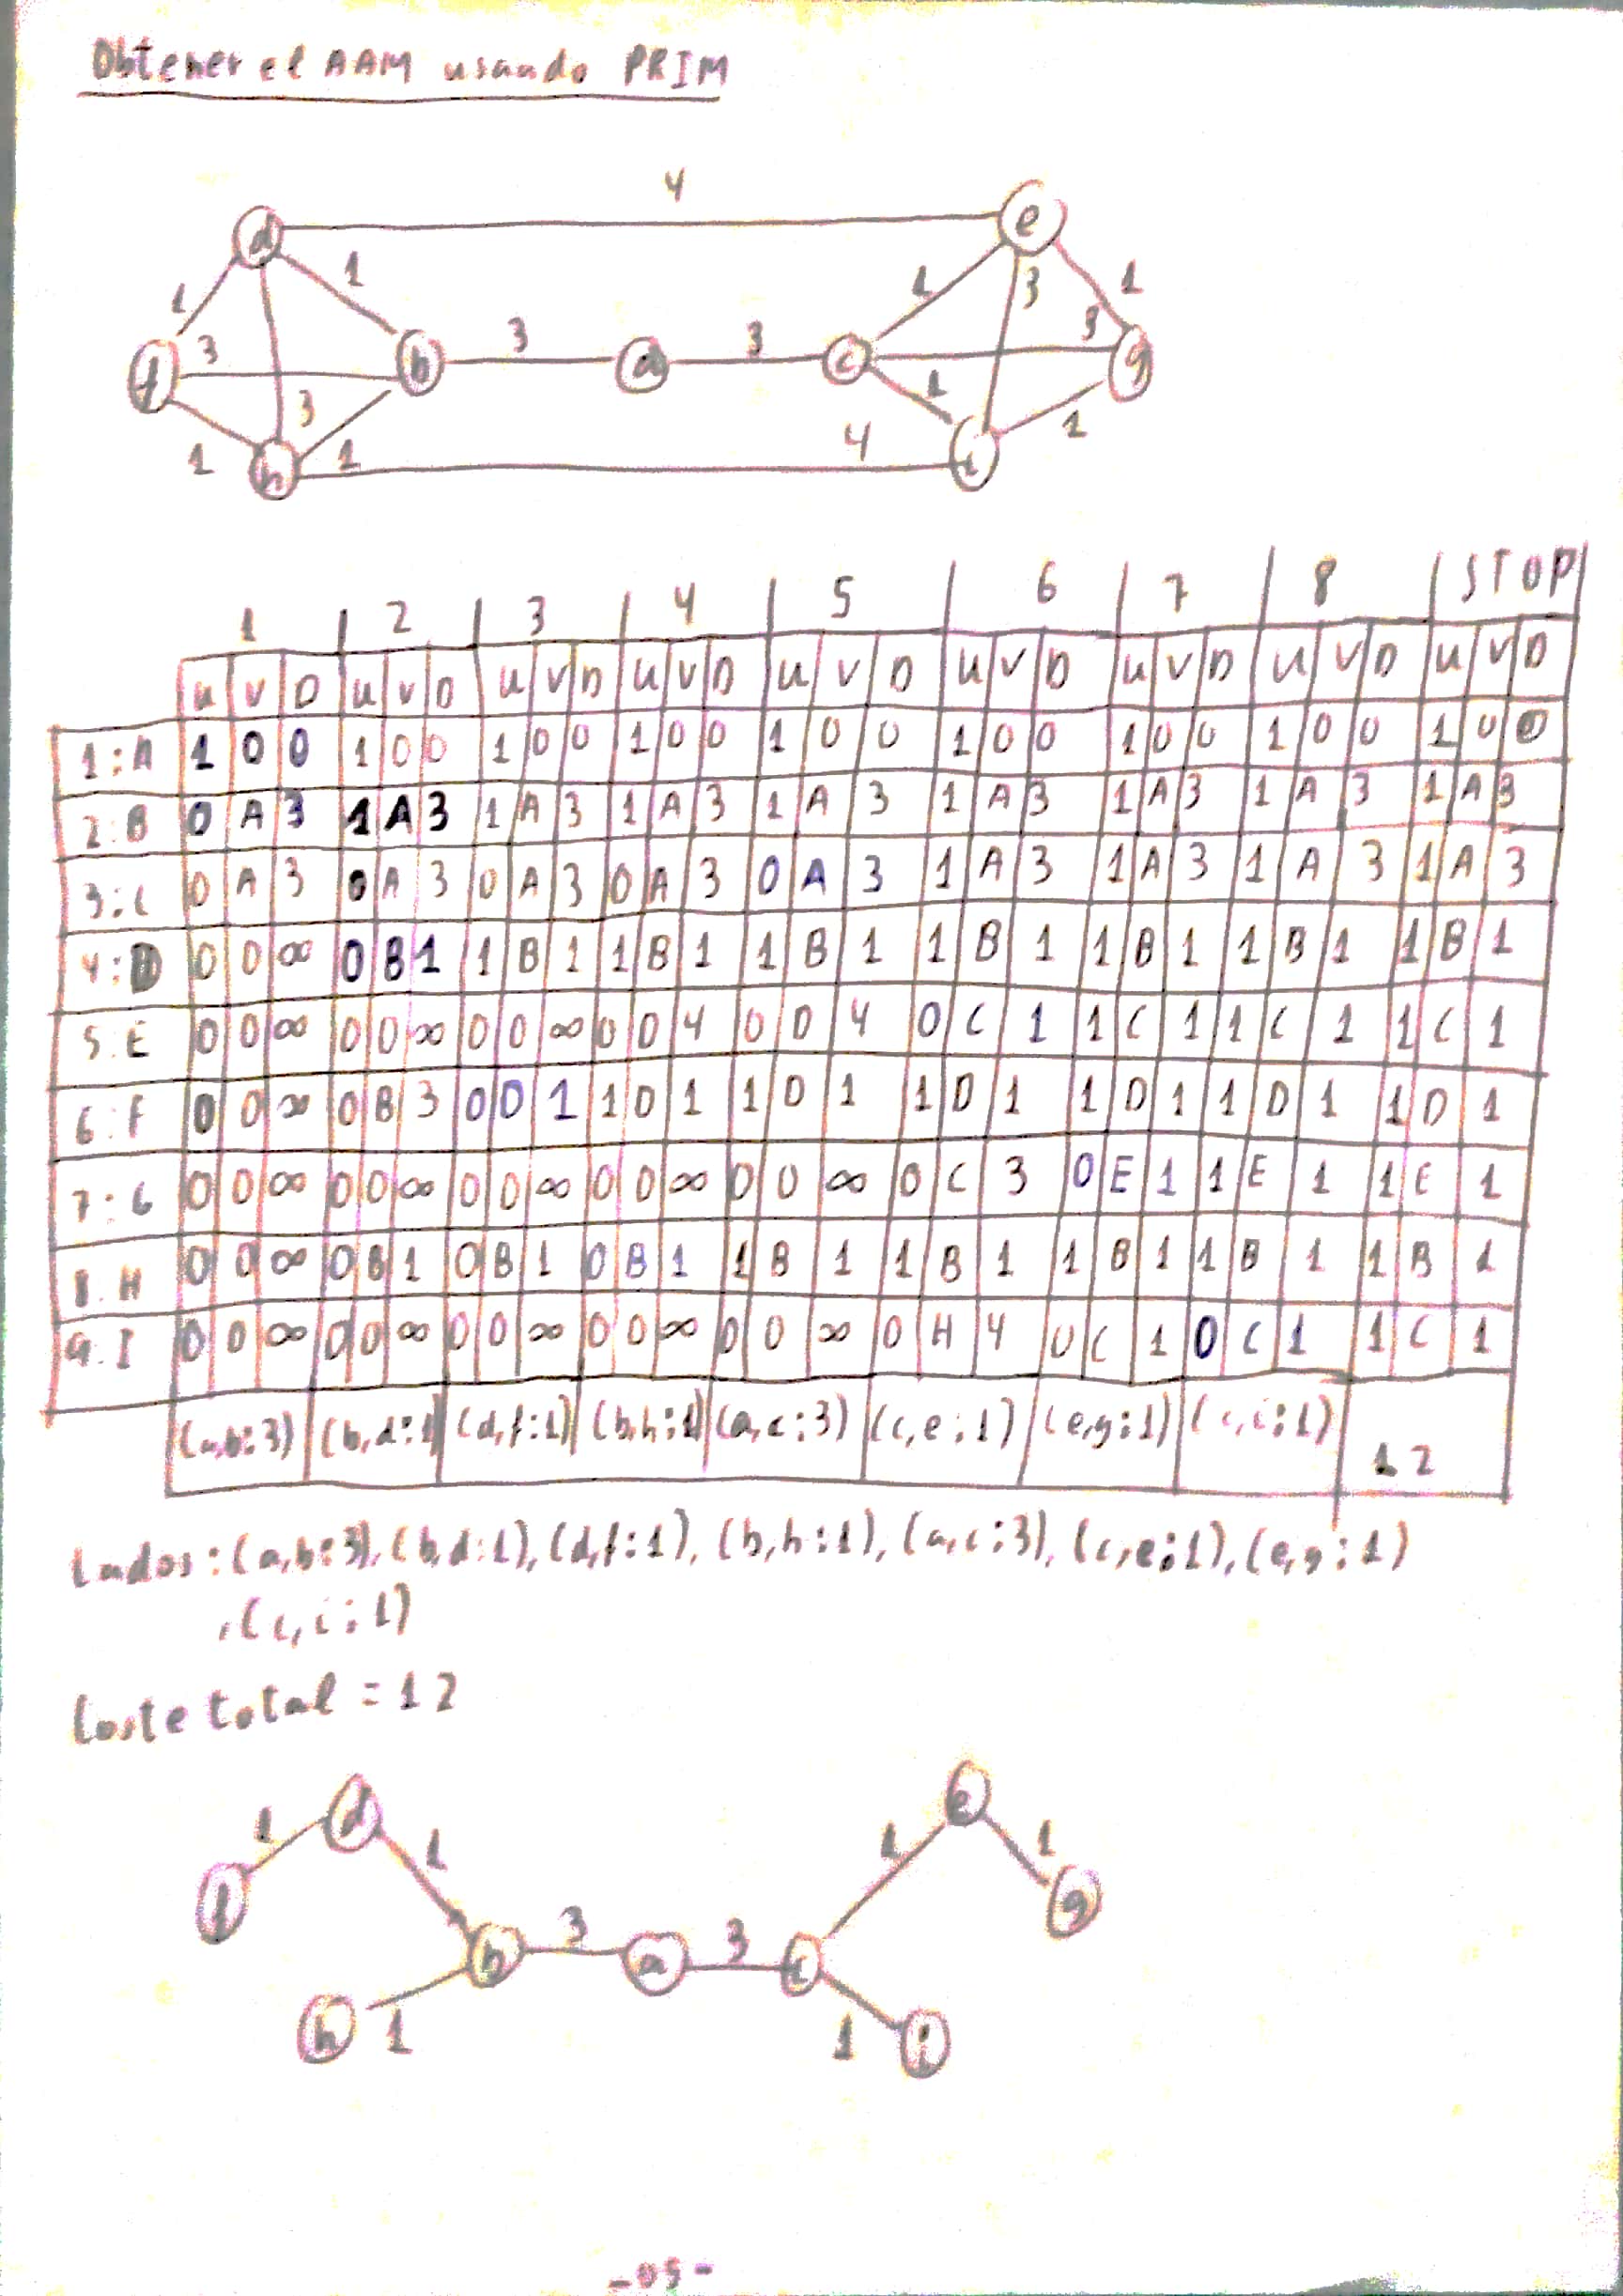 Obtener el AAM usando PRIM
4
d e
1 1 1 3 1
3 3 3 3
f b a c g
3 1
1 1 4 1
h i
1 2 3 4 5 6 7 8 STOP
U V D U V D U V D U V D U V D U V D U V D U V D U V D
1:A 1 0 0 1 0 0 1 0 0 1 0 0 1 0 0 1 0 0 1 0 0 1 0 0 1 0 0
2:B 0 A 3 1 A 3 1 A 3 1 A 3 1 A 3 1 A 3 1 A 3 1 A 3 1 A 3
3:C 0 A 3 0 A 3 0 A 3 0 A 3 0 A 3 1 A 3 1 A 3 1 A 3 1 A 3
4:D 0 0 ∞ 0 B 1 1 B 1 1 B 1 1 B 1 1 B 1 1 B 1 1 B 1 1 B 1
5:E 0 0 ∞ 0 0 ∞ 0 0 ∞ 0 D 4 0 D 4 0 C 1 1 C 1 1 C 1 1 C 1
6:F 0 0 ∞ 0 B 3 0 D 1 1 D 1 1 D 1 1 D 1 1 D 1 1 D 1 1 D 1
7:G 0 0 ∞ 0 0 ∞ 0 0 ∞ 0 0 ∞ 0 0 ∞ 0 C 3 0 E 1 1 E 1 1 E 1
8:H 0 0 ∞ 0 B 1 0 B 1 0 B 1 1 B 1 1 B 1 1 B 1 1 B 1 1 B 1
9:I 0 0 ∞ 0 0 ∞ 0 0 ∞ 0 0 ∞ 0 0 ∞ 0 H 4 0 C 1 0 C 1 1 C 1
(a,b:3) (b,d:1) (d,f:1) (b,h:1) (a,c:3) (c,e:1) (e,g:1) (c,i:1) 12
Lados: (a,b:3), (b,d:1), (d,f:1), (b,h:1), (a,c:3), (c,e:1), (e,g:1)
,(c,i:1)
Coste total = 12
d e
1 1 1 1
f g
b 3 a 3 c
h 1 1 i
-05-